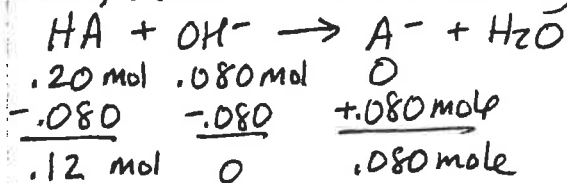 HA + OH⁻ ⟶ A⁻ + H₂O
.20 mol .080 mol 0
-.080 -.080 +.080 mole
.12 mol 0 .080 mole